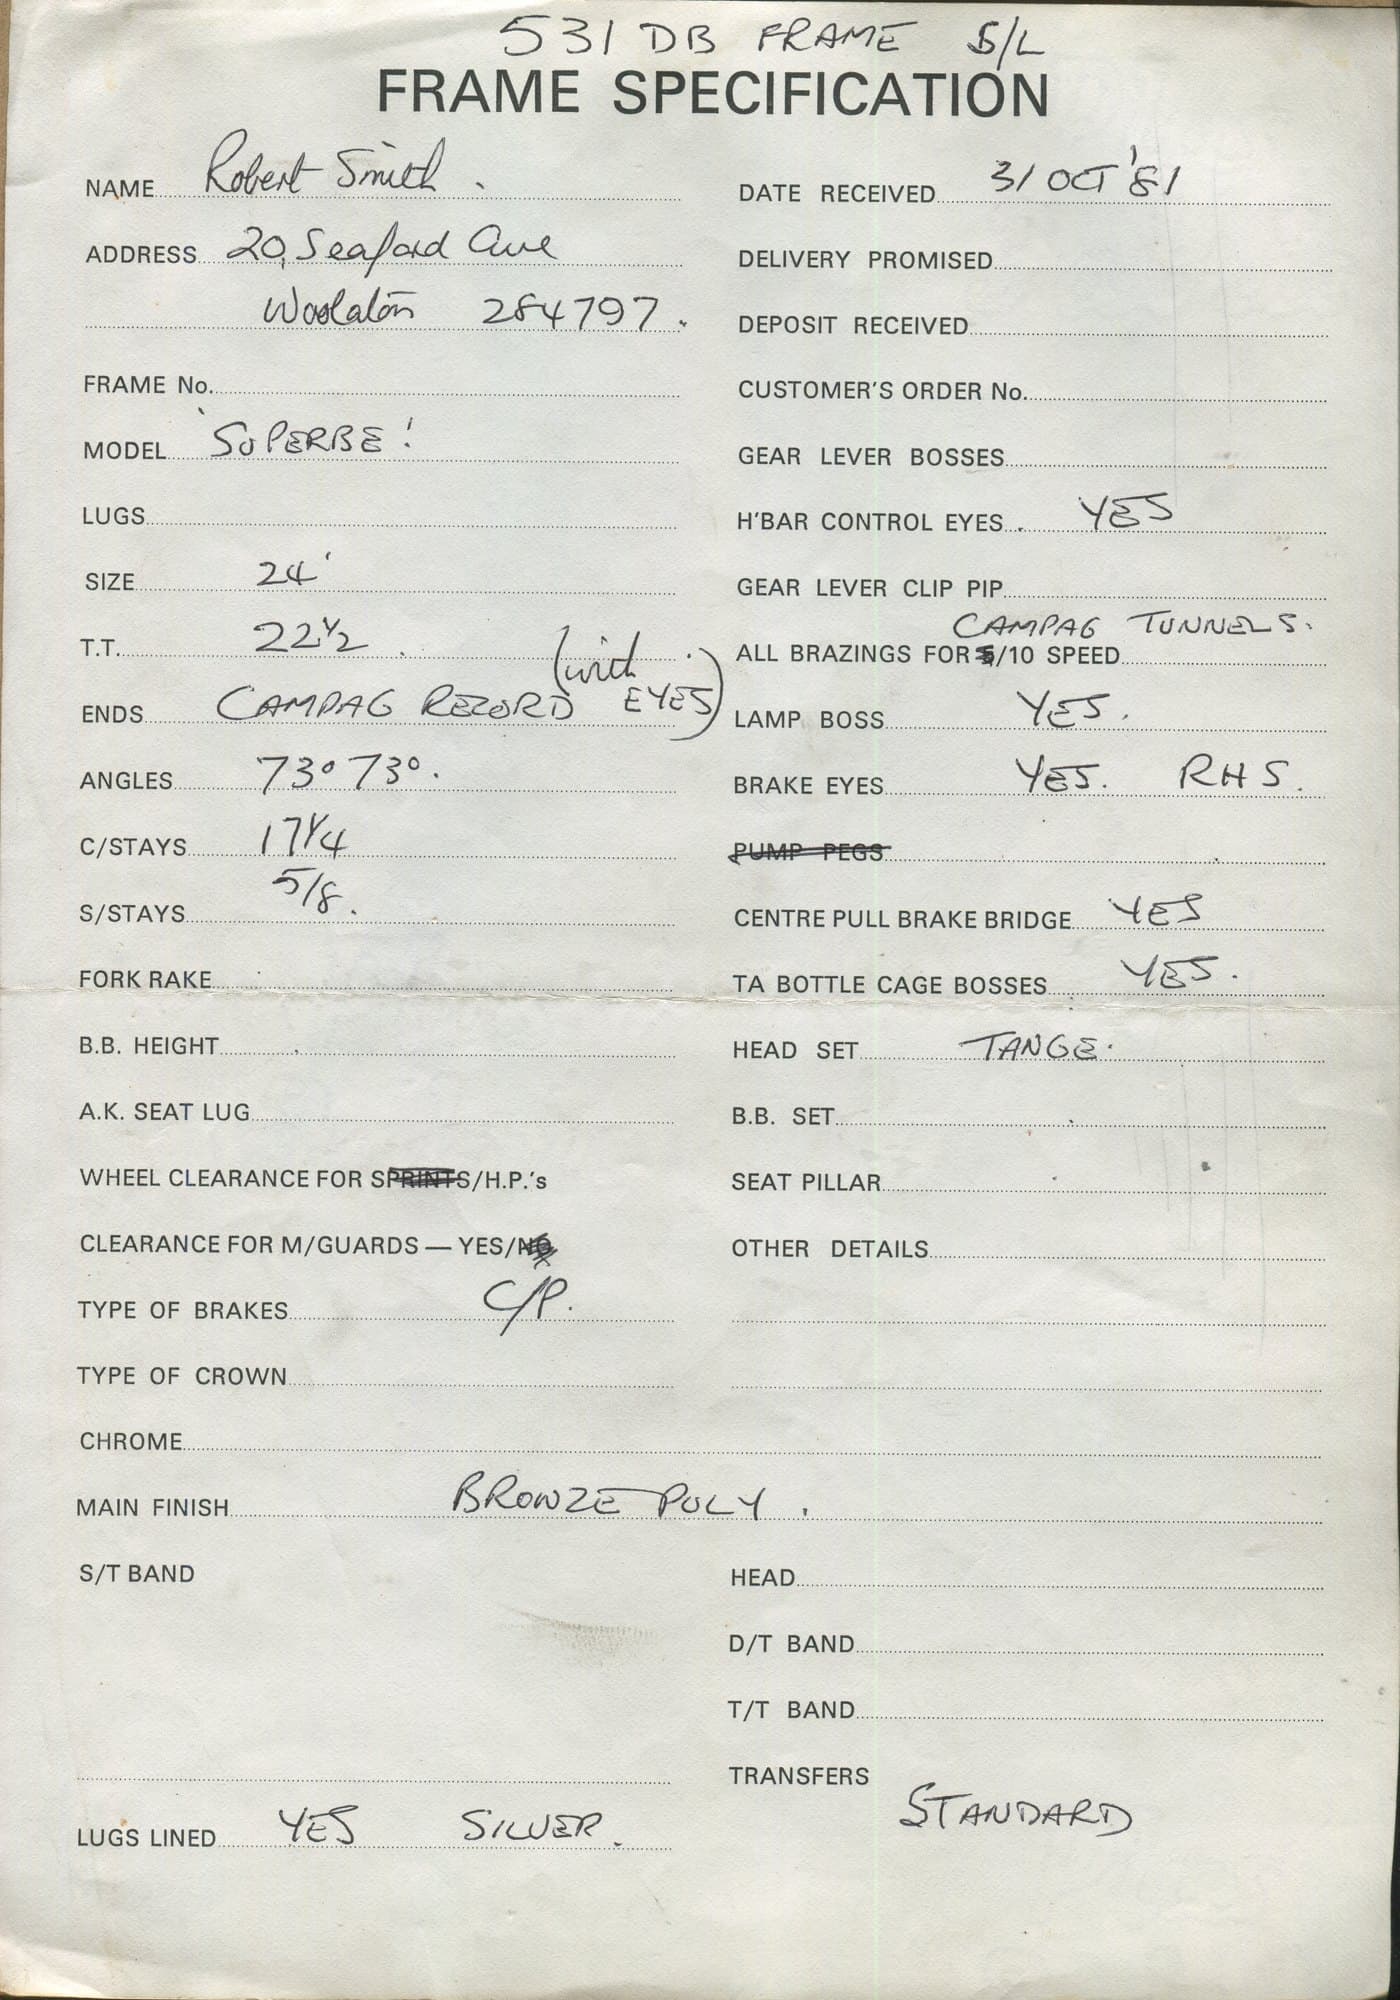 531 DB FRAME S/L
FRAME SPECIFICATION
NAME Robert Smith.
ADDRESS 20, Seaford Ave
Woolaton 284797.
FRAME No.
MODEL 'SUPERBE'
LUGS
SIZE 24'
T.T. 22 1/2
ENDS CAMPAG RECORD (with EYES)
ANGLES 73° 73°.
C/STAYS 17 1/4
S/STAYS 5/8.
FORK RAKE
B.B. HEIGHT
A.K. SEAT LUG
WHEEL CLEARANCE FOR SPRINTS/H.P.'s
CLEARANCE FOR M/GUARDS — YES/NO
TYPE OF BRAKES C/P.
TYPE OF CROWN
DATE RECEIVED 31 OCT '81
DELIVERY PROMISED
DEPOSIT RECEIVED
CUSTOMER'S ORDER No.
GEAR LEVER BOSSES
H'BAR CONTROL EYES YES
GEAR LEVER CLIP PIP
CAMPAG TUNNELS.
ALL BRAZINGS FOR 5/10 SPEED
LAMP BOSS YES.
BRAKE EYES YES. RHS.
PUMP PEGS
CENTRE PULL BRAKE BRIDGE YES
TA BOTTLE CAGE BOSSES YES.
HEAD SET TANGE.
B.B. SET
SEAT PILLAR
OTHER DETAILS
CHROME
MAIN FINISH BRONZE POLY.
S/T BAND
LUGS LINED YES SILVER.
HEAD
D/T BAND
T/T BAND
TRANSFERS
STANDARD